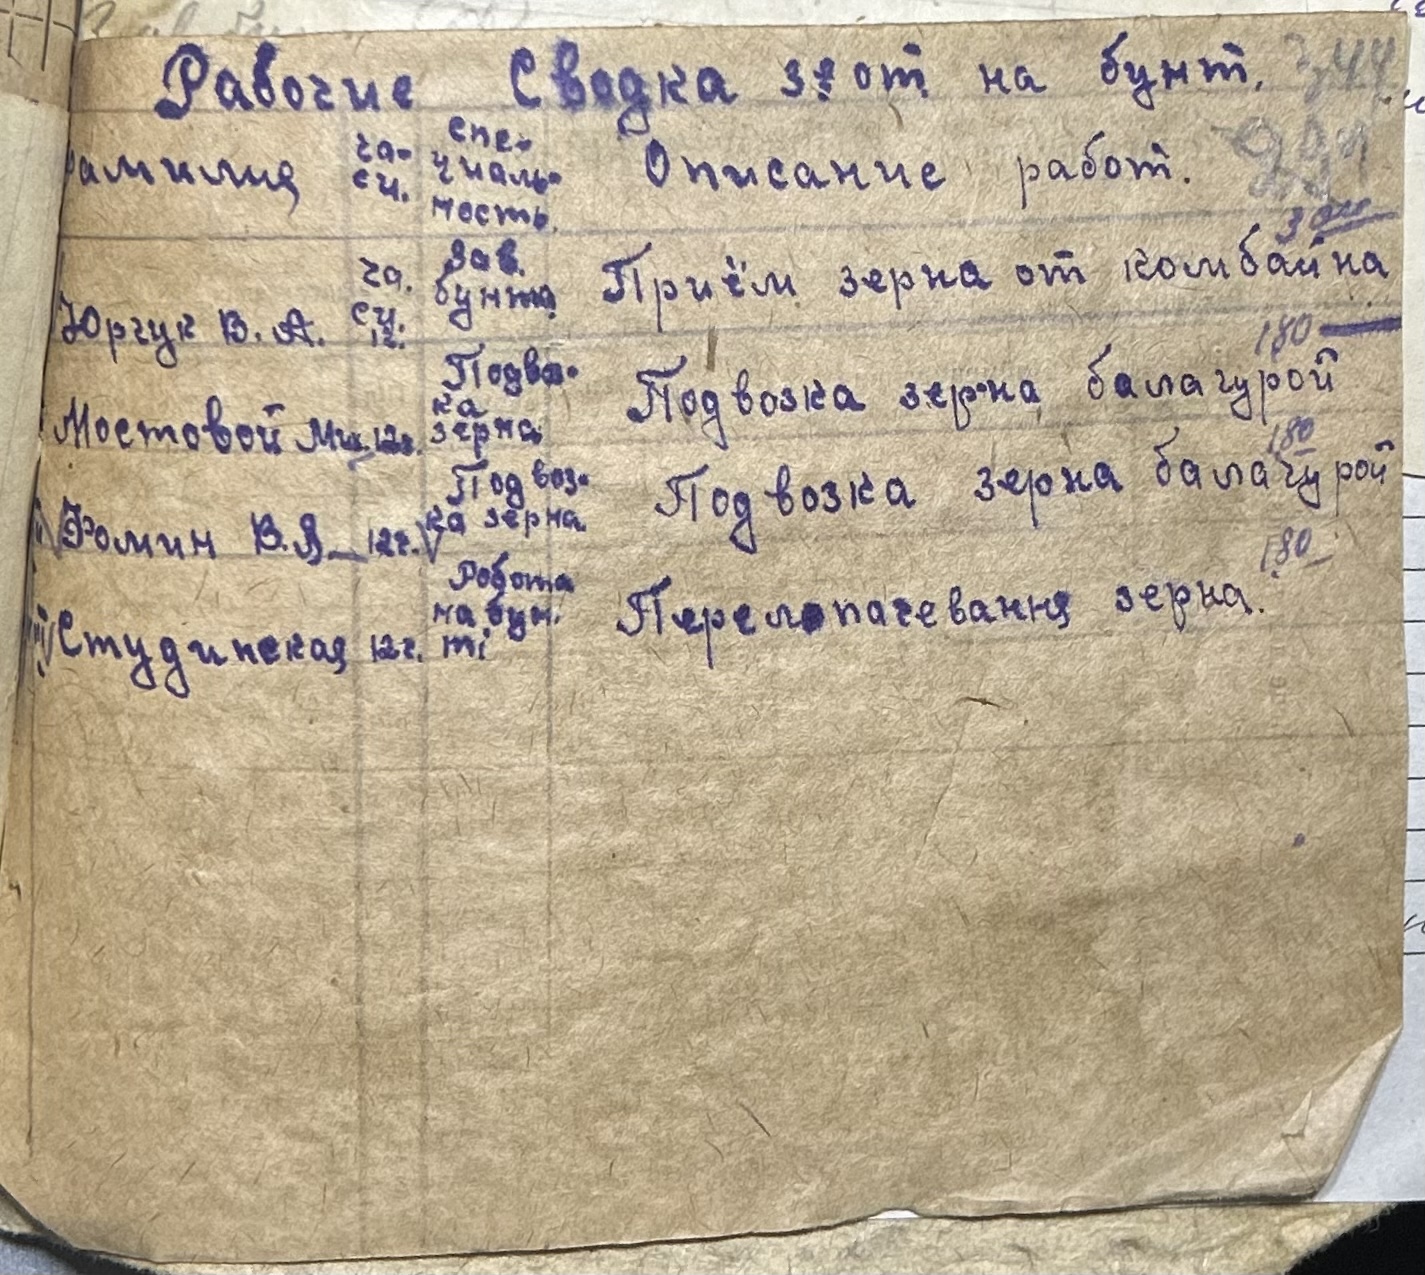 Рабочие Сводка з: от. на бунт.
Фамилия
ча-
сы.
спе-
циаль-
ность
Описание работ.
Юргук В. А.
ча.
сы.
12.
Зав.
бунта
Приём зерна от комбайна
180
Мостовой Мих. 12ч.
Подво-
ка
зерна
Подвозка зерна балагурой
180
Фомин В.Я 12ч.
Подвоз-
ка зерна
Подвозка зерна балагурой
180
Студинская 12ч.
Робота
на бун.
ті
Перелопачевання зерна.